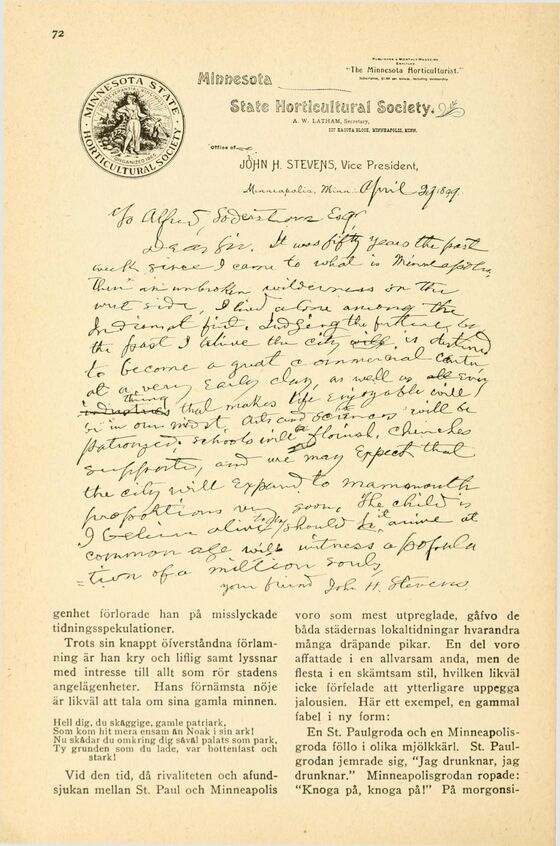 72
PUBLISHES A MONTHLY MAGAZINE
ENTITLED
"The Minnesota Horticulturist."
Subscription, $1.00 per annum, including membership.
MINNESOTA STATE
HORTICULTURAL SOCIETY
ORGANIZED 1866
Minnesota
State Horticultural Society.
A. W. LATHAM, Secretary,
207 KASOTA BLOCK, MINNEAPOLIS, MINN.
Office of
JOHN H. STEVENS, Vice President,
Minneapolis, Minn. April 29 1899
To Alfred Soderstrom Esqr
Dear Sir. It was fifty years the past
week since I came to what is Minneapolis,
then an unbroken wilderness on the
west side, I lived alone among the
Indians at first. Judging the future by
the past I believe the city will is destined
to become a great commercial center
at a very early day, as well as all every
industries thing that makes life enjoyable will
be in our midst. Arts and sciences will be
patronized, schools will flourish, churches
supported, and we may expect that
the city will expand to mammouth
proportions very soon, The child is
I believe alive to day should it arrive at
common age will witness a popula
=tion of a million souls,
your friend John H. Stevens.
genhet förlorade han på misslyckade
tidningsspekulationer.
Trots sin knappt öfverståndna förlam-
ning är han kry och liflig samt lyssnar
med intresse till allt som rör stadens
angelägenheter. Hans förnämsta nöje
är likväl att tala om sina gamla minnen.
Hell dig, du skäggige, gamle patriark,
Som kom hit mera ensam än Noak i sin ark!
Nu skådar du omkring dig såväl palats som park,
Ty grunden som du lade, var bottenfast och
stark!
Vid den tid, då rivaliteten och afund-
sjukan mellan St. Paul och Minneapolis
voro som mest utpreglade, gåfvo de
båda städernas lokaltidningar hvarandra
många dräpande pikar. En del voro
affattade i en allvarsam anda, men de
flesta i en skämtsam stil, hvilken likväl
icke förfelade att ytterligare uppegga
jalousien. Här ett exempel, en gammal
fabel i ny form:
En St. Paulgroda och en Minneapolis-
groda föllo i olika mjölkkärl. St. Paul-
grodan jemrade sig, "Jag drunknar, jag
drunknar." Minneapolisgrodan ropade:
"Knoga på, knoga på!" På morgonsi-